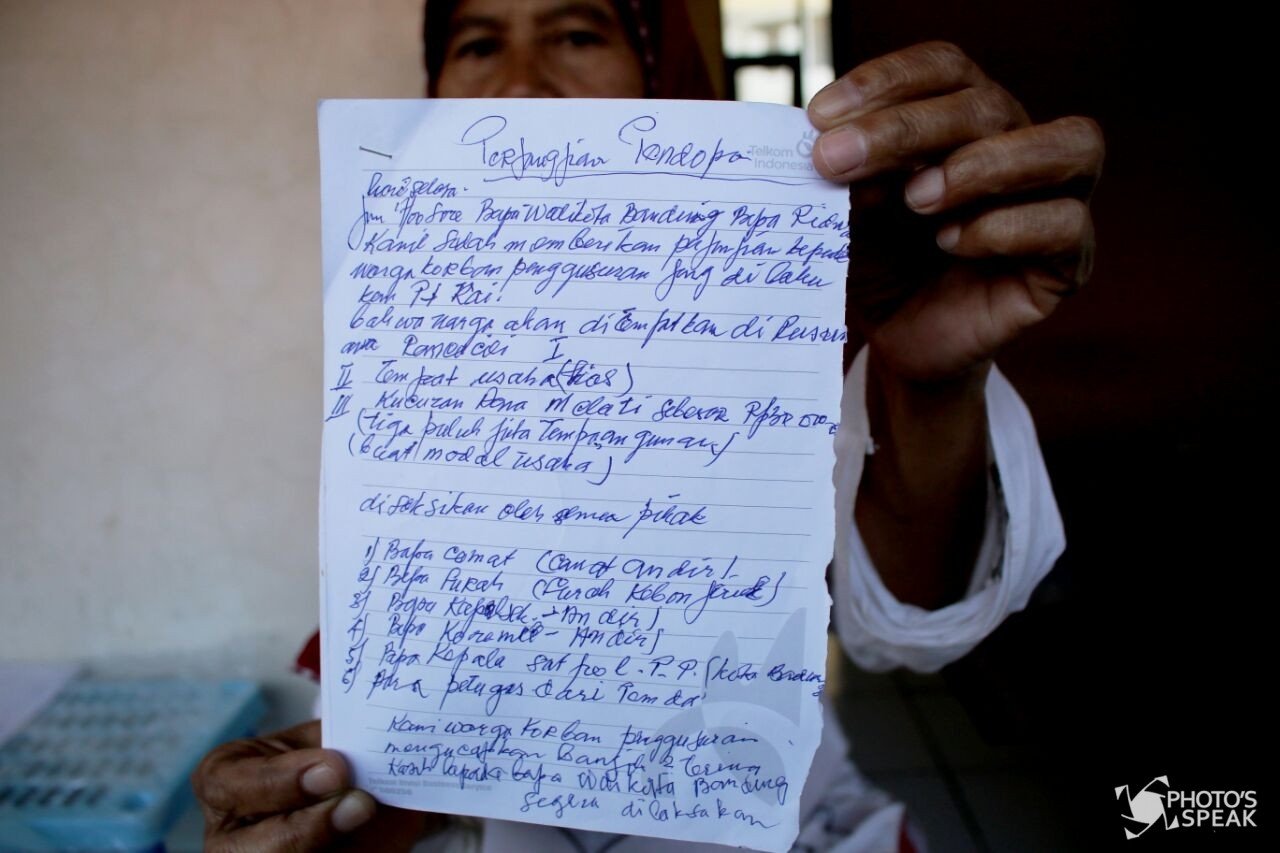 Perjangjian Pendopo
Telkom
Indonesia
hari selasa.
Jam 1:00 Sore Bapa Walikota Bandung Bapa Ridwa
Kamil Sudah memberikan pajinjian kepada
warga korban penggusuran yang di laku
kan Pt Kai.
bahwa warga akan ditempatkan di Rusun
awa Rancacili I
II Tempat usaha (kios)
III Kucuran Dana Melati sebesar Rp 30
(tiga puluh juta Tempa angunan)
(buat modal usaha)
disaksikan oleh semua pihak
1) Bapa camat (Camat andir)
2) Bapa Lurah (Lurah Kebon Jeruk)
3) Bapa Kapolsek - Andir)
4) Bapa Koramil - Andir)
5) Bapa Kepala satpol - P.P. (kota Bandung
6) para petugas dari Pemda
Kami warga korban penggusuran
mengucapkan Banyak2 terima
Kasih kepada bapa walikota Bandung
segera dilaksakan
PHOTO'S
SPEAK